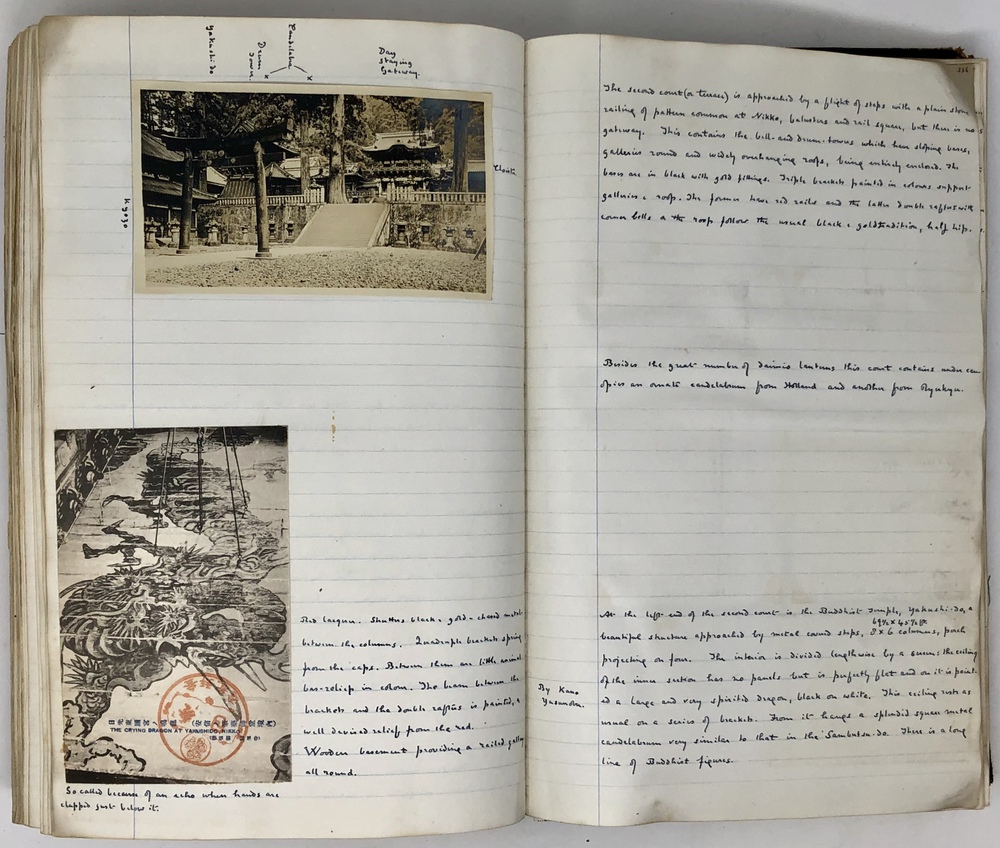 Yakushi-do
Drum
Tower
Candelabra
x x
Day
staying
Gateway.
Kyozo
Cloister
日光東照宮ノ鳴龍
THE CRYING DRAGON AT YAKUSHIDO, NIKKO
So called because of an echo when hands are
clapped just below it.
Red lacquer. Shutters black & gold-chased metal
between the columns. Quadruple brackets spring
from the caps. Between them are little animal
bas-reliefs in colour. The beam between the
brackets and the double rafters is painted, a
well devised relief from the red.
Wooden basement providing a railed gallery
all round.
The second court (or terrace) is approached by a flight of steps with a plain stone
railing of pattern common at Nikko, balusters and rail square, but there is no
gateway. This contains the bell- and drum-towers which have sloping bases,
galleries round and widely overhanging roofs, being entirely enclosed. The
bases are in black with gold fittings. Triple brackets painted in colours support
galleries & roofs. The former have red rails and the latter double rafters with
corner bells & the roofs follow the usual black & gold tradition, half hip.
Besides the great number of daimio lanterns this court contains under can-
opies an ornate candelabrum from Holland and another from Ryukyu.
By Kano
Yasunobu.
At the left end of the second court is the Buddhist Temple, Yakushi-do, a
beautiful structure approached by metal coverd steps, 8 x 6 columns, porch
projecting on four. The interior is divided lengthwise by a beam: the ceiling
of the inner section has no panels but is perfectly flat and on it is paint-
ed a large and very spirited dragon, black on white. This ceiling rests as
usual on a series of brackets. From it hangs a splendid square metal
candelabrum very similar to that in the Sambutsu-do. There is a long
line of Buddhist figures.